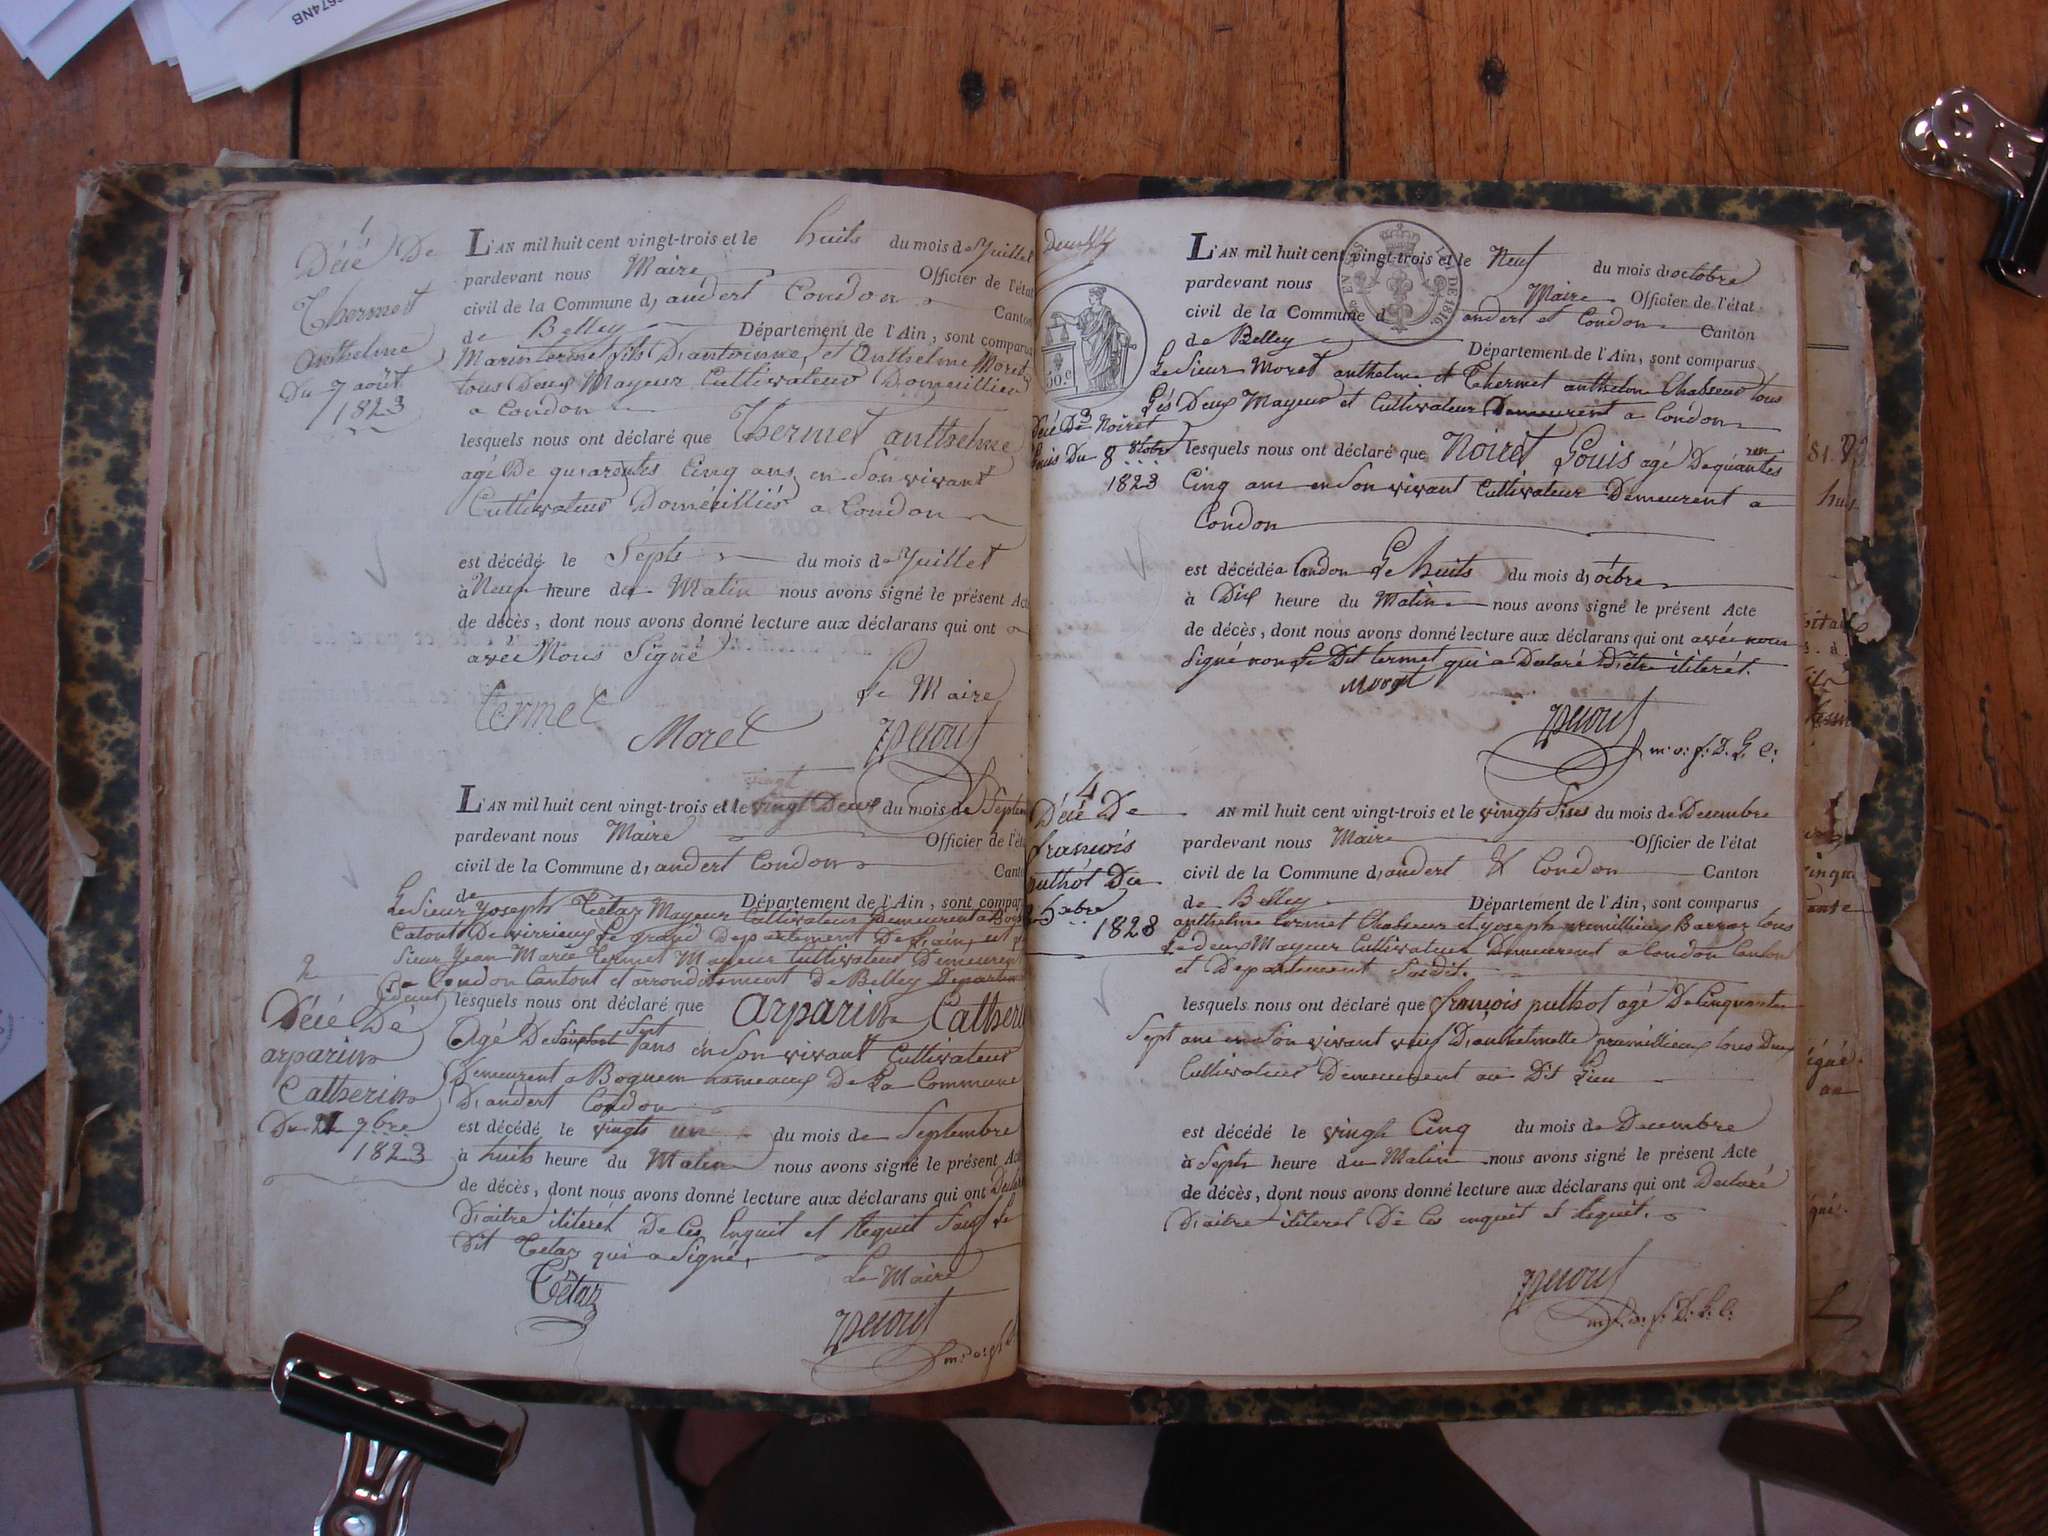 674NB
1
Décé De
Thermet
Anthelme
Du 7 août
1823
L'AN mil huit cent vingt-trois et le huits du mois de Juillet
pardevant nous Maire Officier de l'état
civil de la Commune d, andert Condon Canton
de Belley Département de l'Ain, sont comparus
Marin termet fils D'antoinne, et Anthelme Moret
tous Deux Mayeur Cultivateur Domeillier
a Condon
lesquels nous ont déclaré que Thermet anthelme
agé De quarentes Cinq ans en Son vivant
Cultivateur Doméilliér a Condon
est décédé le Septs du mois de Juillet
à Neuf heure du Matin nous avons signé le présent Acte
de décès, dont nous avons donné lecture aux déclarans qui ont
avéc Nous Signé
Le Maire
termet
Moret
2
Décé Dé
arparin
Catherin
Du 21 7bre
1823
vingt
L'AN mil huit cent vingt-trois et le vingt Deux du mois de Septem
pardevant nous Maire Officier de l'éta
civil de la Commune d, andert Condon Canto
de Département de l'Ain, sont compar
Le Sieur Yoseph Tétaz Mayeur Cultivateur Demeurent a
Catont De virrieux Le grand Departement De L'ain, et
Sieur Jean Marie termet Mayeur Cultivateur Demeurent
a Condon Cantont et arrondissement de Belley Departem
lesquels nous ont déclaré que arparin Catheri
Agé De Sept ans en Son vivant Cultivateur
Demeurent a Bognem hameaux De La Commune
D'andert Condon
est décédé le vingts un du mois de Septembre
à huits heure du Matin nous avons signé le présent Act
de décès, dont nous avons donné lecture aux déclarans qui ont Declaré
D'aitre iliterét De Ces Enquit et Requit Sauf Le
Dit Tetaz qui a Signé,
Tétaz
Le Maire
50.c
3
Décé De Noiret
Louis Du 8 8tobre
1823
LOI DE 1816.
L'AN mil huit cent vingt-trois et le Neuf du mois d'octobre
pardevant nous Maire Officier de l'état
civil de la Commune d andert et Condon Canton
de Belley Département de l'Ain, sont comparus
Le Sieur Moret anthelme et Thermet anthelme Chasseur tous
Les Deux Mayeur et Cultivateur Demeurent a Condon
lesquels nous ont déclaré que Noiret Louis agé De quarentes
Cinq ans en Son vivant Cultivateur Demeurent a
Condon
est décédé a Condon Le huits du mois d, octbre
à Dix heure du Matin nous avons signé le présent Acte
de décès, dont nous avons donné lecture aux déclarans qui ont avéc nous
Signé non Le Dit termet qui a Declaré D'être iliterét.
Moret
4
Décé De
François
puthot Du
1823
AN mil huit cent vingt-trois et le vingts Sixs du mois de Decembre
pardevant nous Maire Officier de l'état
civil de la Commune d, andert & Condon Canton
de Belley Département de l'Ain, sont comparus
anthelme termet Chasseur et yoseph premillieux Barraz tous
Le deux Mayeur Cultivateur Demeurent a Condon Canton
et Departement Susdit.
lesquels nous ont déclaré que François puthot agé De Cinquantes
Sept ans en Son vivant veuf D'anthelmette premillieux tous Deux
Cultivateur Demeurent au Dit Lieu
est décédé le vingt Cinq du mois de Decembre
à Septs heure du Matin nous avons signé le présent Acte
de décès, dont nous avons donné lecture aux déclarans qui ont Declaré
D'aitre iliteret De Ces enquit et Requit.